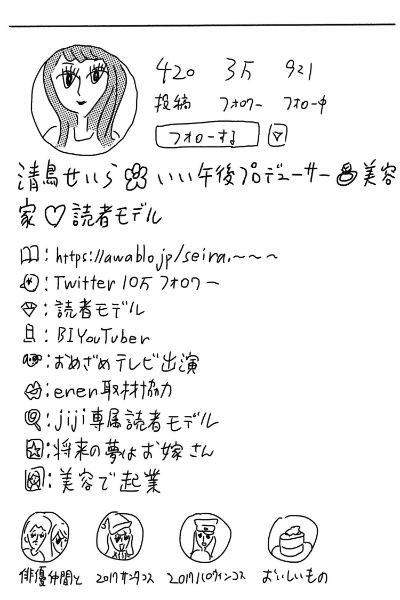 420 3万 921
投稿 フォロワー フォロー中
フォローする
清鳥せいら いい午後プロデューサー 美容
家♡読者モデル
: https://awablo.jp/seira.~~~
: Twitter 10万フォロワー
: 読者モデル
: BIYouTuber
: おめざめテレビ出演
: enen取材協力
: jiji専属読者モデル
: 将来の夢はお嫁さん
: 美容で起業
俳優仲間と 2017サンタコス 2017ハロウィンコス おいしいもの